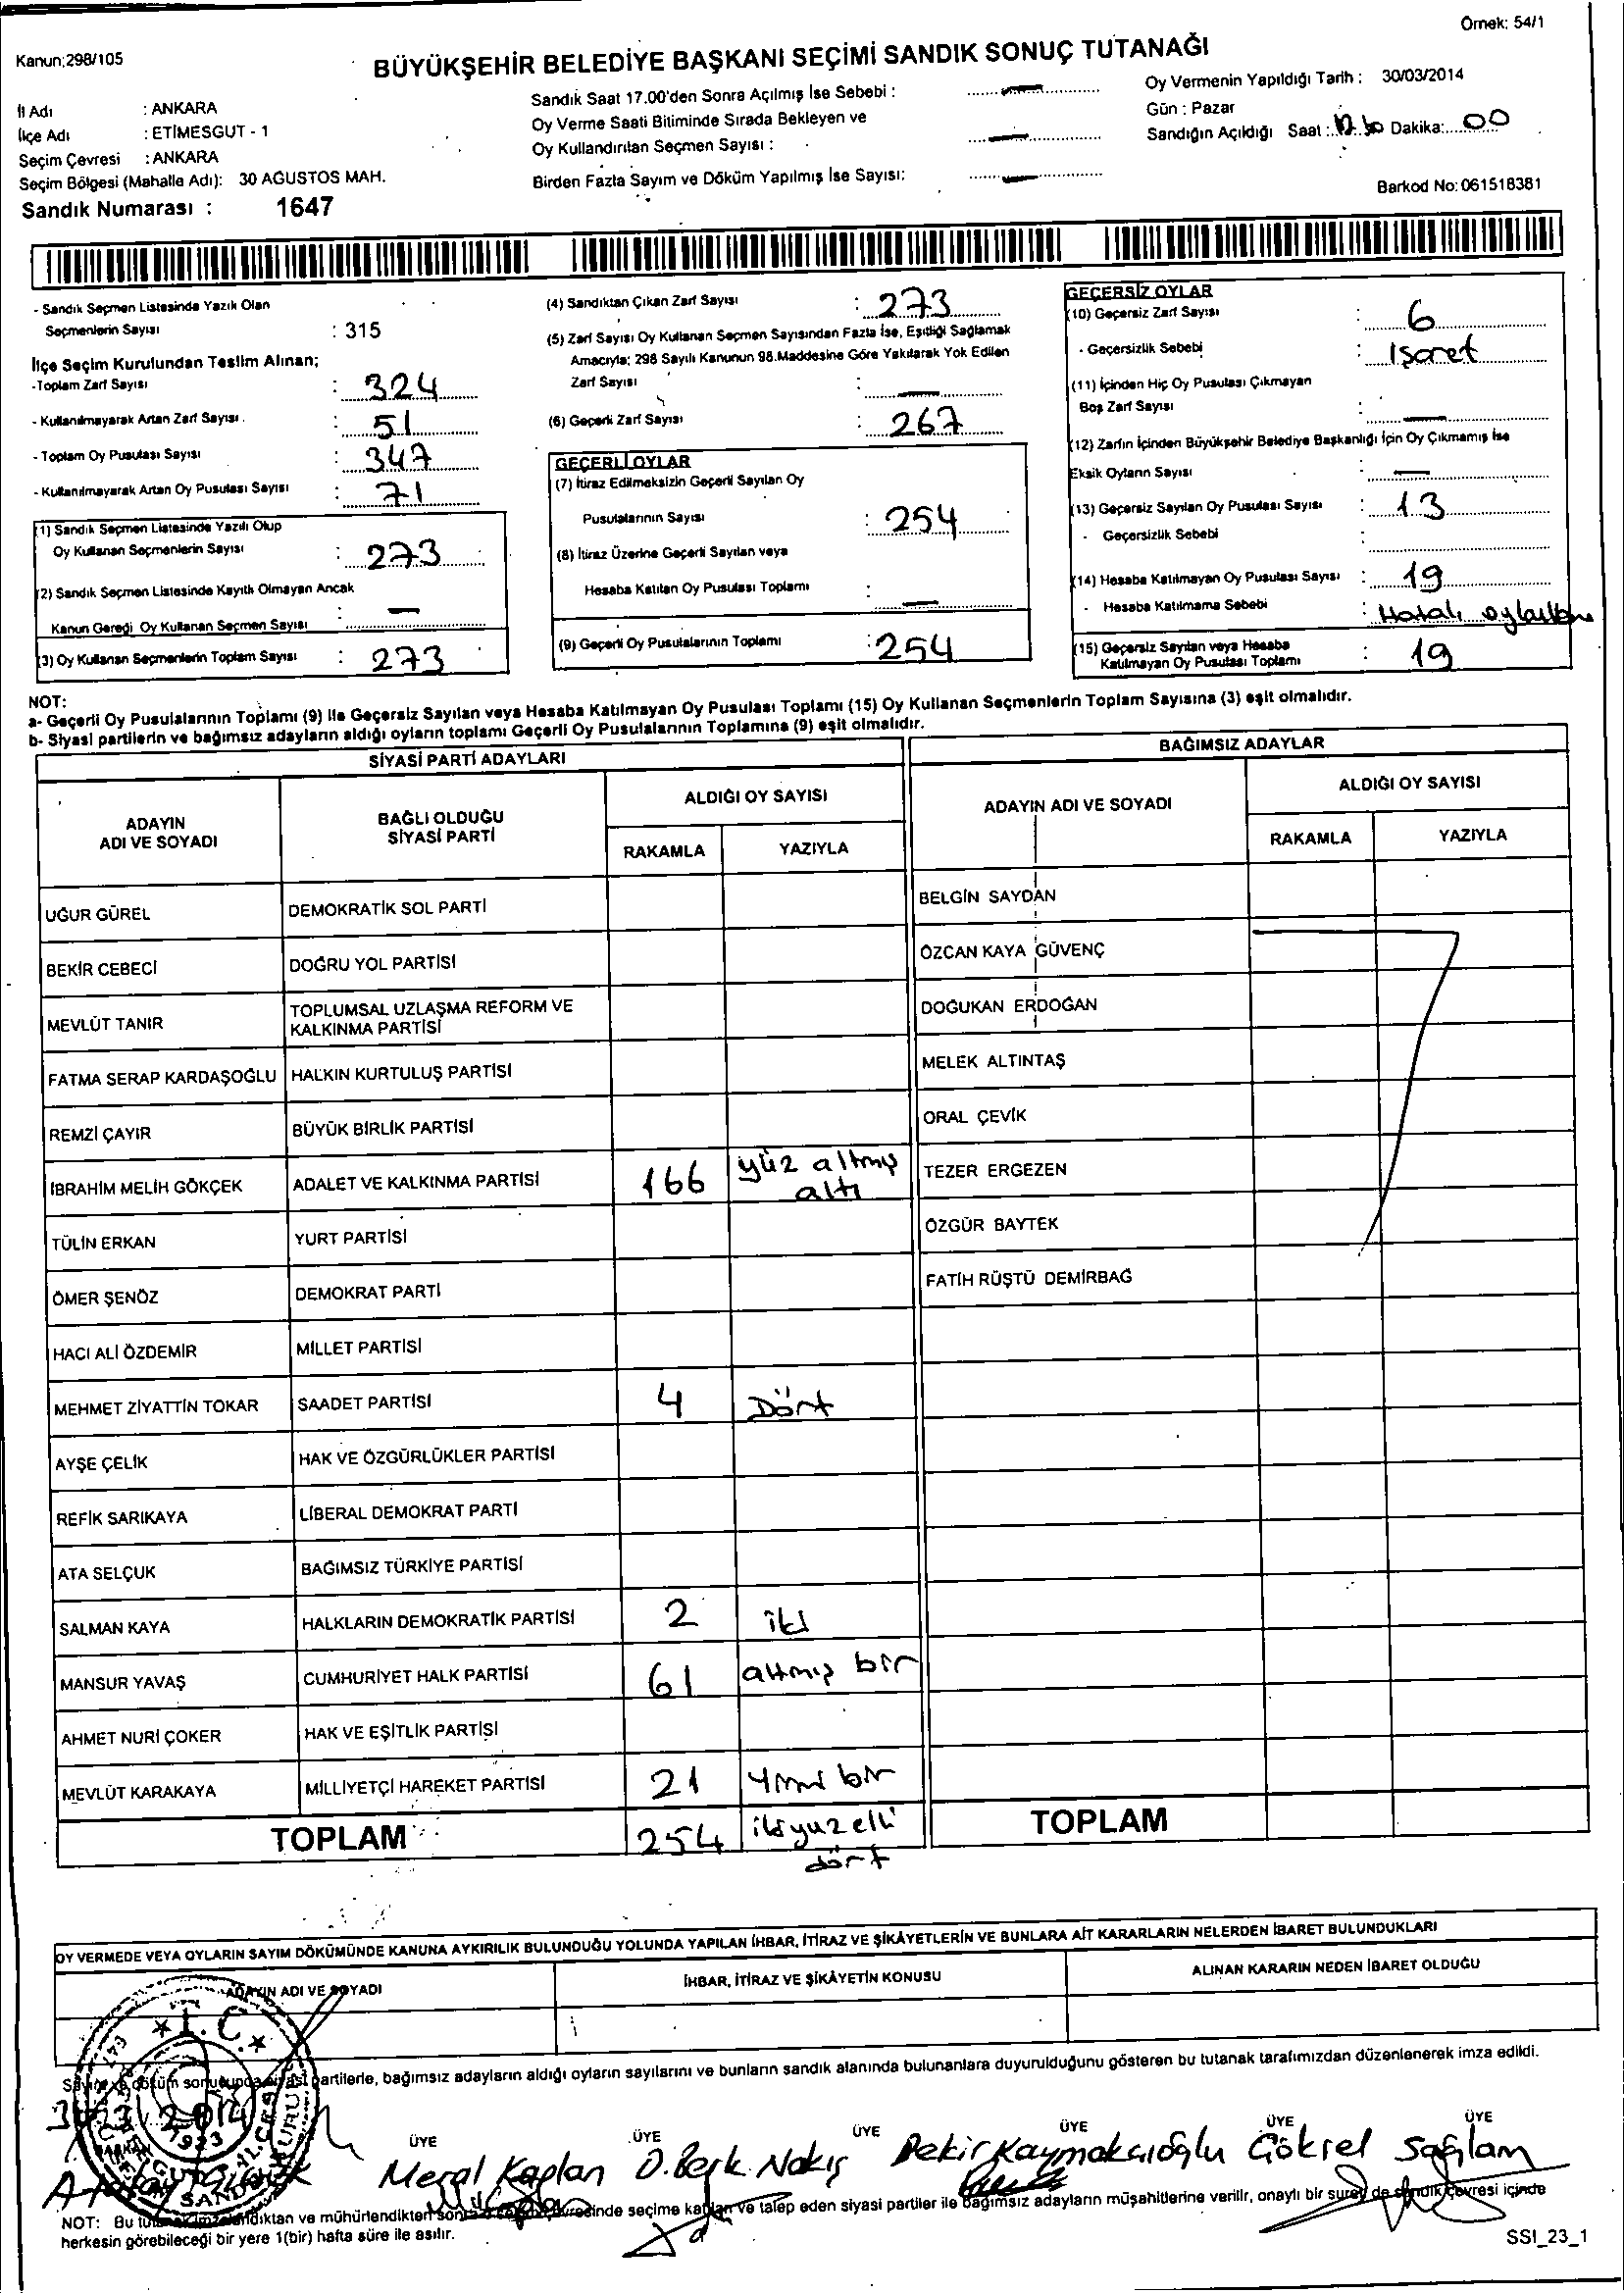 Örnek: 54/1
Kanun;298/105
BÜYÜKŞEHİR BELEDİYE BAŞKANI SEÇİMİ SANDIK SONUÇ TUTANAĞI
İl Adı : ANKARA
İlçe Adı : ETİMESGUT - 1
Seçim Çevresi : ANKARA
Seçim Bölgesi (Mahalle Adı): 30 AGUSTOS MAH.
Sandık Numarası : 1647
Sandık Saat 17.00'den Sonra Açılmış İse Sebebi :
Oy Verme Saati Bitiminde Sırada Bekleyen ve
Oy Kullandırılan Seçmen Sayısı :
Birden Fazla Sayım ve Döküm Yapılmış İse Sayısı:
Oy Vermenin Yapıldığı Tarih : 30/03/2014
Gün : Pazar
Sandığın Açıldığı Saat : Dakika: 00
Barkod No: 061518381
- Sandık Seçmen Listesinde Yazılı Olan
Seçmenlerin Sayısı : 315
İlçe Seçim Kurulundan Teslim Alınan;
-Toplam Zarf Sayısı : 324
- Kullanılmayarak Artan Zarf Sayısı : 51
- Toplam Oy Pusulası Sayısı : 347
- Kullanılmayarak Artan Oy Pusulası Sayısı : 71
(1) Sandık Seçmen Listesinde Yazılı Olup
Oy Kullanan Seçmenlerin Sayısı : 273
(2) Sandık Seçmen Listesinde Kayıtlı Olmayan Ancak
Kanun Gereği Oy Kullanan Seçmen Sayısı : —
(3) Oy Kullanan Seçmenlerin Toplam Sayısı : 273
(4) Sandıktan Çıkan Zarf Sayısı : 273
(5) Zarf Sayısı Oy Kullanan Seçmen Sayısından Fazla İse, Eşitliği Sağlamak
Amacıyla; 298 Sayılı Kanunun 98.Maddesine Göre Yakılarak Yok Edilen
Zarf Sayısı : —
(6) Geçerli Zarf Sayısı : 267
GEÇERLİ OYLAR
(7) İtiraz Edilmeksizin Geçerli Sayılan Oy
Pusulalarının Sayısı : 254
(8) İtiraz Üzerine Geçerli Sayılan veya
Hesaba Katılan Oy Pusulası Toplamı : —
(9) Geçerli Oy Pusulalarının Toplamı : 254
GEÇERSİZ OYLAR
(10) Geçersiz Zarf Sayısı : 6
- Geçersizlik Sebebi : İşaret
(11) İçinden Hiç Oy Pusulası Çıkmayan
Boş Zarf Sayısı : —
(12) Zarfın İçinden Büyükşehir Belediye Başkanlığı İçin Oy Çıkmamış İse
Eksik Oyların Sayısı : —
(13) Geçersiz Sayılan Oy Pusulası Sayısı : 13
- Geçersizlik Sebebi :
(14) Hesaba Katılmayan Oy Pusulası Sayısı : 19
- Hesaba Katılmama Sebebi : Hatalı
(15) Geçersiz Sayılan veya Hesaba
Katılmayan Oy Pusulası Toplamı : 19
NOT:
a- Geçerli Oy Pusulalarının Toplamı (9) ile Geçersiz Sayılan veya Hesaba Katılmayan Oy Pusulası Toplamı (15) Oy Kullanan Seçmenlerin Toplam Sayısına (3) eşit olmalıdır.
b- Siyasi partilerin ve bağımsız adayların aldığı oyların toplamı Geçerli Oy Pusulalarının Toplamına (9) eşit olmalıdır.
SİYASİ PARTİ ADAYLARI
ADAYIN ADI VE SOYADI BAĞLI OLDUĞU SİYASİ PARTİ ALDIĞI OY SAYISI
RAKAMLA YAZIYLA
UĞUR GÜREL DEMOKRATİK SOL PARTİ
BEKİR CEBECİ DOĞRU YOL PARTİSİ
MEVLÜT TANIR TOPLUMSAL UZLAŞMA REFORM VE KALKINMA PARTİSİ
FATMA SERAP KARDAŞOĞLU HALKIN KURTULUŞ PARTİSİ
REMZİ ÇAYIR BÜYÜK BİRLİK PARTİSİ
İBRAHİM MELİH GÖKÇEK ADALET VE KALKINMA PARTİSİ 166 yüz altmış altı
TÜLİN ERKAN YURT PARTİSİ
ÖMER ŞENÖZ DEMOKRAT PARTİ
HACI ALİ ÖZDEMİR MİLLET PARTİSİ
MEHMET ZİYATTİN TOKAR SAADET PARTİSİ 4 Dört
AYŞE ÇELİK HAK VE ÖZGÜRLÜKLER PARTİSİ
REFİK SARIKAYA LİBERAL DEMOKRAT PARTİ
ATA SELÇUK BAĞIMSIZ TÜRKİYE PARTİSİ
SALMAN KAYA HALKLARIN DEMOKRATİK PARTİSİ 2 iki
MANSUR YAVAŞ CUMHURİYET HALK PARTİSİ 61 altmış bir
AHMET NURİ ÇOKER HAK VE EŞİTLİK PARTİSİ
MEVLÜT KARAKAYA MİLLİYETÇİ HAREKET PARTİSİ 21 yirmi bir
TOPLAM 254 ikiyüzelli dört
BAĞIMSIZ ADAYLAR
ADAYIN ADI VE SOYADI ALDIĞI OY SAYISI
RAKAMLA YAZIYLA
BELGİN SAYDAN
ÖZCAN KAYA GÜVENÇ
DOĞUKAN ERDOĞAN
MELEK ALTINTAŞ
ORAL ÇEVİK
TEZER ERGEZEN
ÖZGÜR BAYTEK
FATİH RÜŞTÜ DEMİRBAĞ
TOPLAM
OY VERMEDE VEYA OYLARIN SAYIM DÖKÜMÜNDE KANUNA AYKIRILIK BULUNDUĞU YOLUNDA YAPILAN İHBAR, İTİRAZ VE ŞİKÂYETLERİN VE BUNLARA AİT KARARLARIN NELERDEN İBARET BULUNDUKLARI
ADAYIN ADI VE SOYADI İHBAR, İTİRAZ VE ŞİKÂYETİN KONUSU ALINAN KARARIN NEDEN İBARET OLDUĞU
T.C.
Sayım ve döküm sonucunda siyasi partilerle, bağımsız adayların aldığı oyların sayılarını ve bunların sandık alanında bulunanlara duyurulduğunu gösteren bu tutanak tarafımızdan düzenlenerek imza edildi.
1923
BAŞKAN ÜYE ÜYE ÜYE ÜYE ÜYE ÜYE
Meral Kaplan O.Berk Nakış Bekir Kaymakcıoğlu Göksel Sağlam
NOT: Bu tutanak imzalandıktan ve mühürlendikten sonra seçim çevresinde seçime katılan ve talep eden siyasi partiler ile bağımsız adayların müşahitlerine verilir, onaylı bir sureti de sandık çevresi içinde
herkesin görebileceği bir yere 1(bir) hafta süre ile asılır.
SSI_23_1